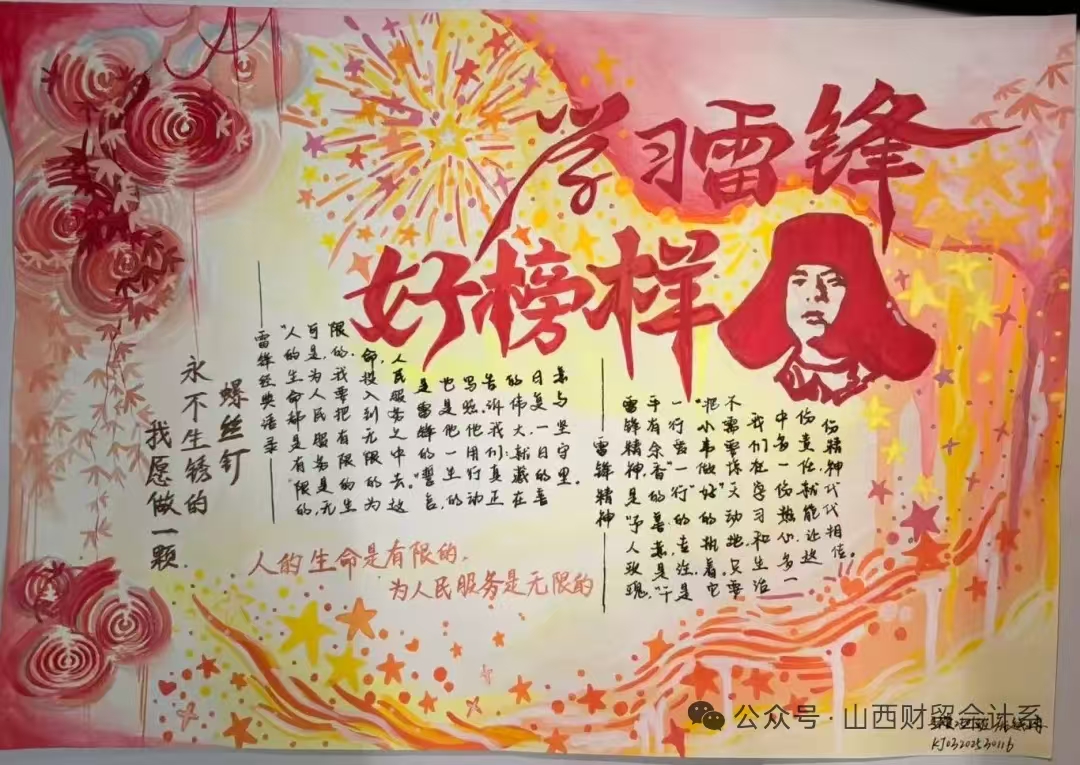 学习雷锋
好榜样
我愿做一颗
永不生锈的
螺丝钉
——雷锋经典语录——
“人的生命都是有限的,
可是,为人民服务是无
限的.我要把有限的生
命,投入到无限的为
人民服务之中去。”这
是雷锋的“誓言,
也是他一生的
写照.他用行动
告诉我们:真正
的伟大,就藏在
日复一日的善
意与坚守里。
——雷锋精神——
雷锋精神,是“予人玫瑰,
手有余香”的善意,是“干
一行爱一行”的专注,是
“把小事做好”的执着。它
不需要惊天动地,只要
我们在学习和生活
中多一份热心,多一
份责任,就能让这
份精神代代相传。
人的生命是有限的,
为人民服务是无限的
公众号·山西财贸会计系
KJ03202530116